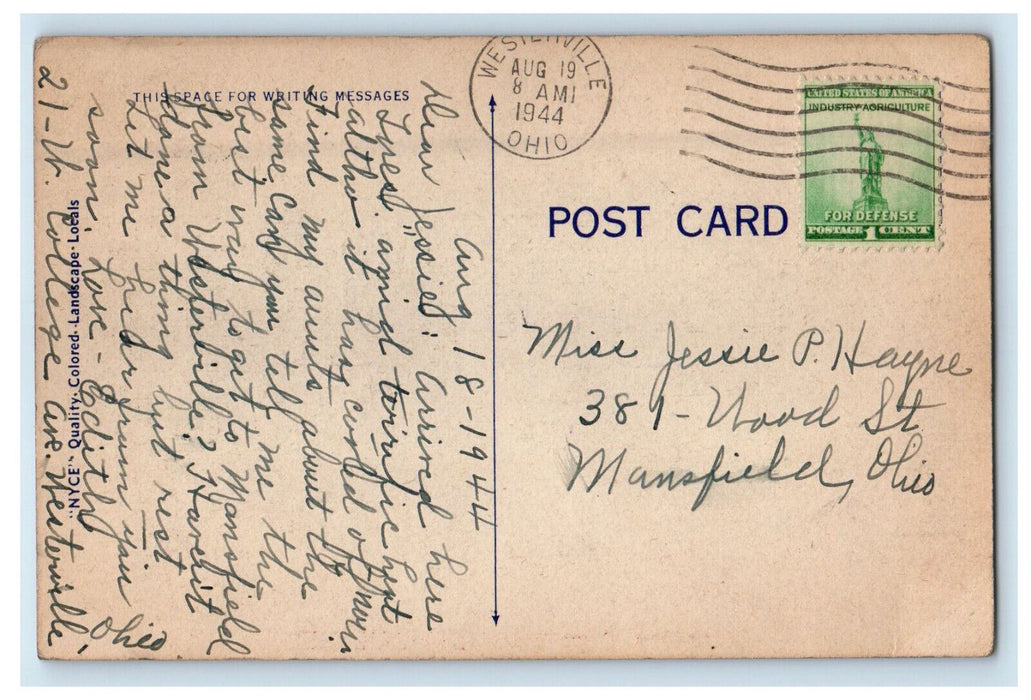 THIS SPACE FOR WRITING MESSAGES
WESTERVILLE
AUG 19
8 AM
1944
OHIO
UNITED STATES OF AMERICA
INDUSTRY AGRICULTURE
FOR DEFENSE
POSTAGE 1 CENT
POST CARD
Miss Jessie P. Hayne
381 - Wood St
Mansfield, Ohio
Aug 18 - 1944
Dear "Jessie": Arrived here
amid terrific heat
altho it has cooled off now
Find my aunts about the
same. Can you tell me the
best way to get to Mansfield
from Westerville? Haven't
done a thing but rest
Let me hear from you
soon. Love - Edith
21 - W. College Ave. Westerville,
Ohio
"NYCE" Quality - Colored - Landscape - Locals